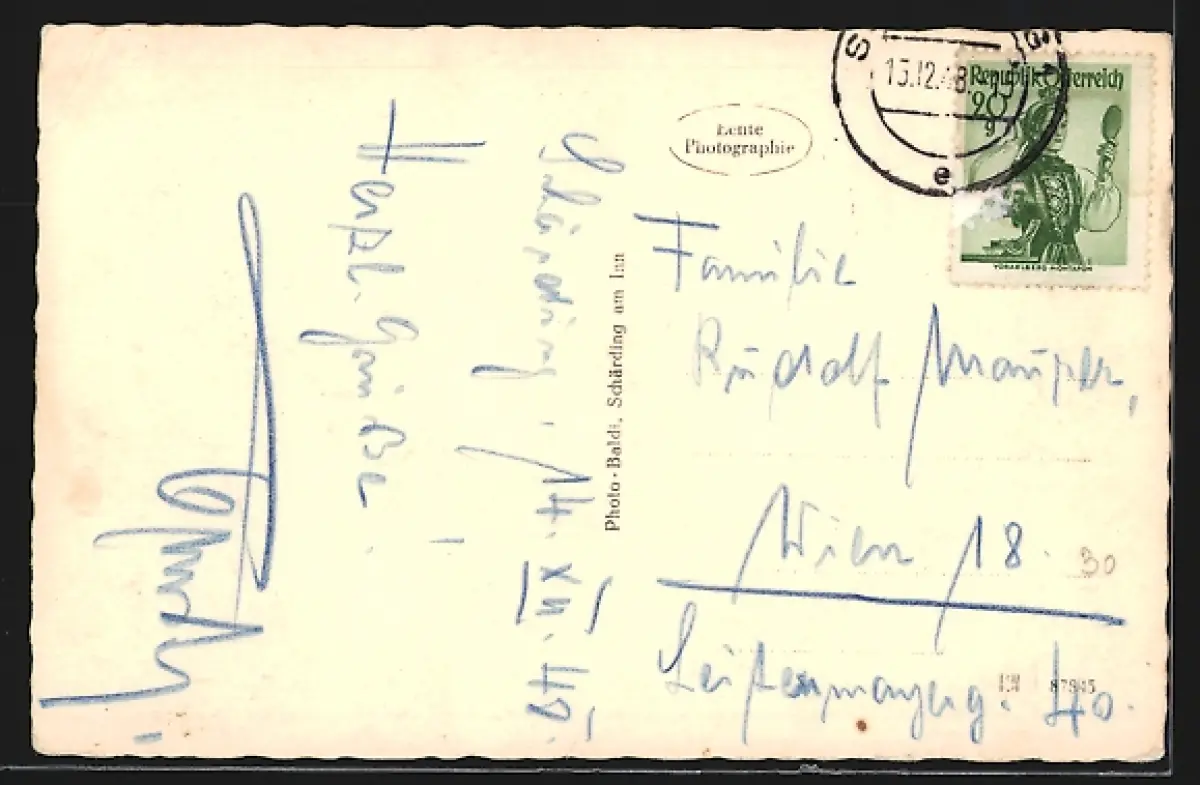 Schärding, 14. XII. 48.
Herzl. Grüße
Photo-Baldi, Schärding am Inn
Echte
Photographie
13.12.48
e
Republik Österreich
20
g
VORARLBERG MONTAFON
Familie
Rudolf
Wien 18.
30
87945
40.